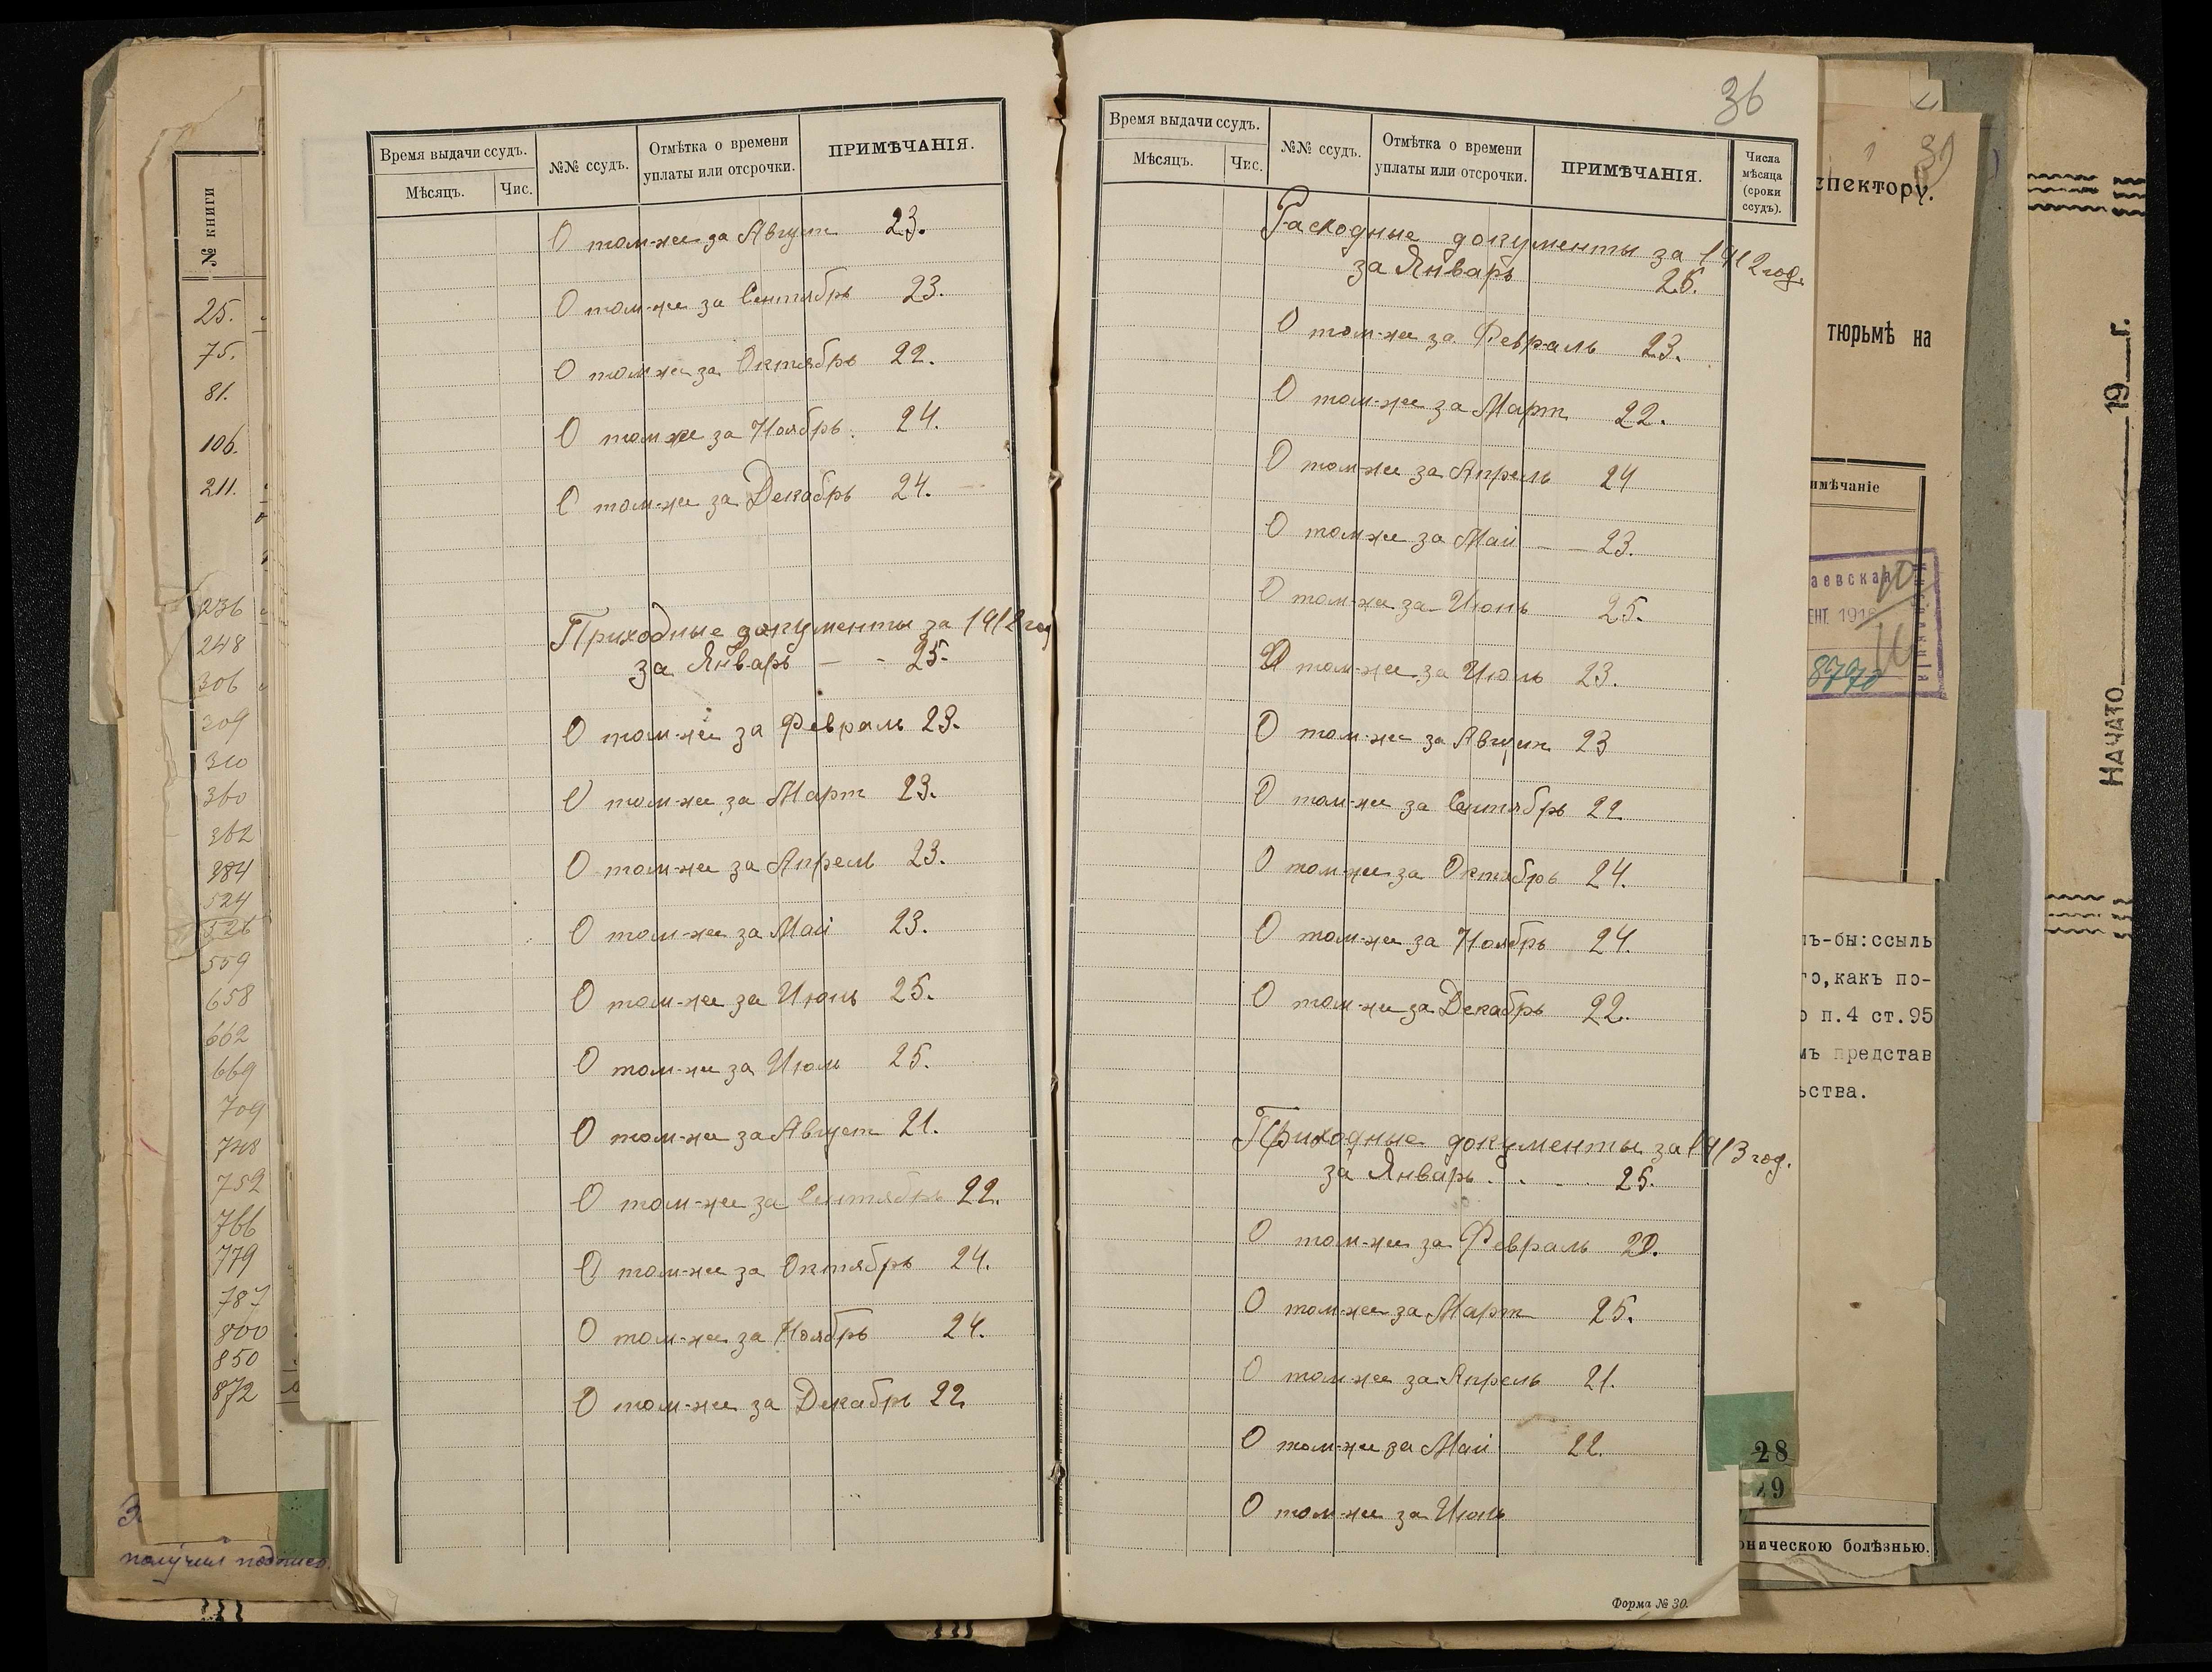 № книги
25.
75.
81.
106.
211.
236
248
306
309
310
360
362
384
524
526
559
658
662
669
709
748
752
766
779
787
800
850
872
получил
Время выдачи ссудъ.
Мѣсяцъ.
Чис.
№№ ссудъ.
Отмѣтка о времени
уплаты или отсрочки.
ПРИМѢЧАНІЯ.
О том-же за Август 23.
О том-же за Сентябрь 23.
О том-же за Октябрь 22.
О том-же за Ноябрь. 24.
О том-же за Декабрь 24.
Приходные документы за 1912 год
за Январь — - 25.
О том-же за Февраль 23.
О том-же за Март 23.
О том-же за Апрель 23.
О том-же за Май 23.
О том-же за Июнь 25.
О том-же за Июль 25.
О том-же за Август 21.
О том-же за Сентябрь 22.
О том-же за Октябрь 24.
О том-же за Ноябрь 24.
О том-же за Декабрь 22
36
Время выдачи ссудъ.
Мѣсяцъ.
Чис.
№№ ссудъ.
Отмѣтка о времени
уплаты или отсрочки.
ПРИМѢЧАНІЯ.
Числа
мѣсяца
(сроки
ссудъ).
Расходные документы за 1912 год.
за Январь 26.
О том-же за Февраль 23.
О том-же за Март 22.
О том-же за Апрель 24
О том-же за Май — — 23.
О том-же за Июнь 25.
О том-же за Июль 23.
О том-же за Август 23
О том-же за Сентябрь 22
О том-же за Октябрь 24.
О том-же за Ноябрь 24.
О том-же за Декабрь 22.
Приходные документы за 1913 год.
за Январь . . . . 25.
О том-же за Февраль 20.
О том-же за Март 25.
О том-же за Апрель 21.
О том-же за Май 22.
О том-же за Июнь
Форма № 30.
спектору.
тюрьмѣ на
имѣчаніе
аевская
ЕНТ. 1916
8770
ъ-бы:ссыль
го,какъ по-
п.4 ст.95
мъ представ
ьства.
28
29
оническою болѣзнью.
НАЧАТО 19 г.